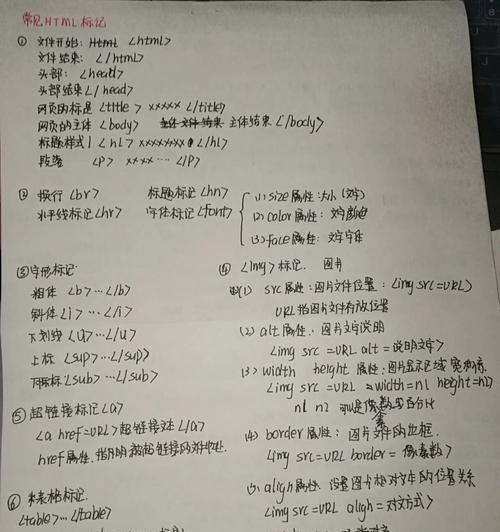 常见HTML标记
① 文件开始: Html <html>
文件结束: </html>
头部: <head>
头部结束</head>
网页的标题 <title> xxxxx </title>
网页的主体 <body> 主体结束 </body>
标题样式1 <h1> xxxxxxx </h1>
段落 <p> xxxx… </p>
② 换行<br> 标题标记<hn>
水平线标记<hr> 字体标记<font>
(1) size属性:大小(文字)
(2) color属性: 文字颜色
(3) face属性: 文字字体
③ 字形标记:
粗体 <b>…</b>
斜体<i>…</i>
下划线<u>…</u>
上标 <sup>…</sup>
下标<sub>…</sub>
⑤ 超链接标记<a>
<a href=URL>超链接文本</a>
href属性.指明被超链接的文件地址.
⑥ 表格标记.
<table>…</table>
④ <img>标记. 图片
(1) src属性:图片文件位置: <img src=URL>
URL指图片文件存放位置
(2) alt属性. 图片文字说明
<img src=URL alt=说明文字>
(3) width height 属性: 图片显示区域宽和高.
<img src=URL width=n1 height=n2>
n1 n2 可以是像素或百分比
(4) border属性: 图片文件的边框.
<img src=URL border=像素数>
(5) align属性: 设置图片相对文本的位置关系
<img src=URL align=对齐方式>